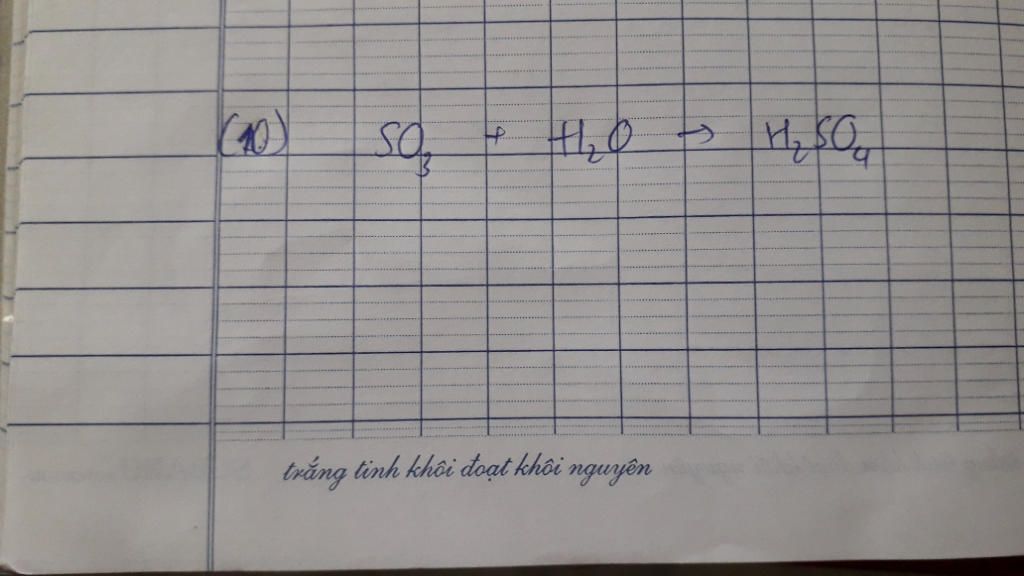 (10) SO₃ + H₂O → H₂SO₄
trắng tinh khôi đoạt khôi nguyên